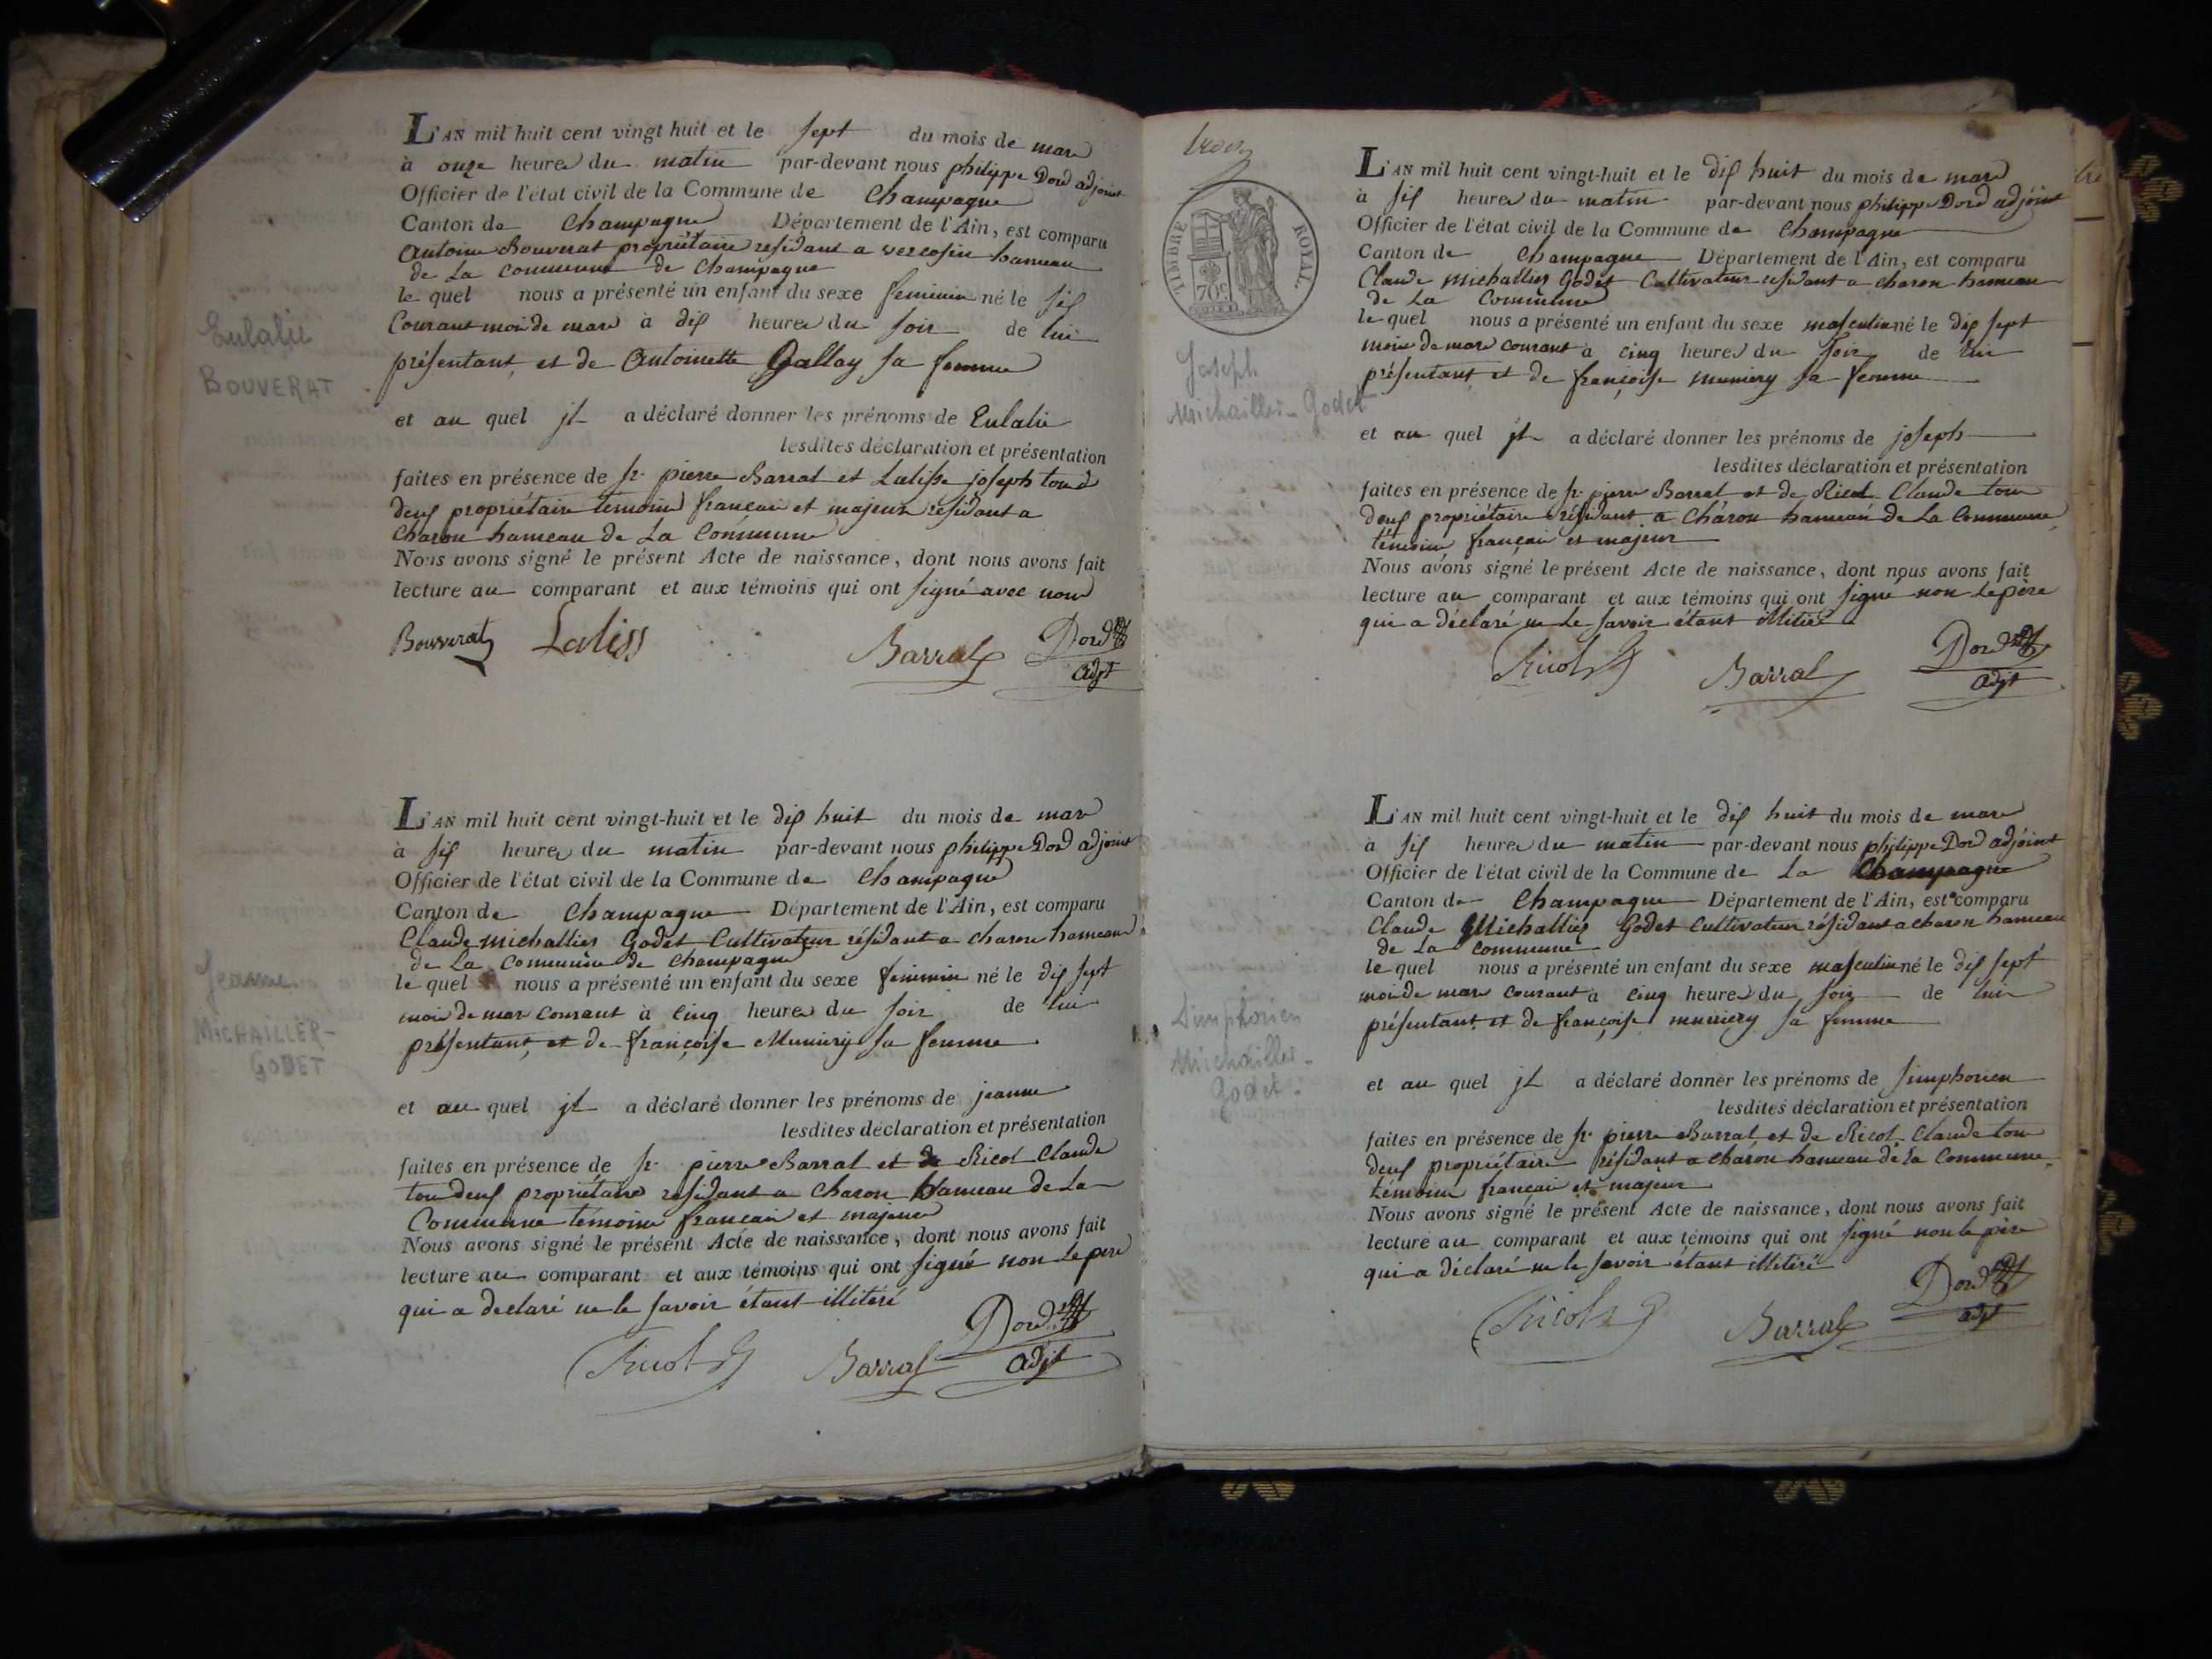 L'AN mil huit cent vingt huit et le sept du mois de mars
à onze heures du matin par-devant nous philippe Dord adjoint
Officier de l'état civil de la Commune de Champagne
Canton de Champagne Département de l'Ain, est comparu
Antoine Bouverat propriétaire residant a vercosin hameau
de La Commune de Champagne
le quel nous a présenté un enfant du sexe feminin né le six
Courant mois de mars à dix heures du soir de lui
présentant, et de Antoinette Gallay sa femme
Eulalie
BOUVERAT
et au quel jl a déclaré donner les prénoms de Eulalie
lesdites déclaration et présentation
faites en présence de sr. pierre Barral et Lalisse joseph tous
deux propriétaire temoins francais et majeurs residant a
Charon hameau de La Commune
Nous avons signé le présent Acte de naissance, dont nous avons fait
lecture au comparant et aux témoins qui ont signé avec nous
Bouverat Laliss Barral Dord
adjt
L'AN mil huit cent vingt-huit et le dix huit du mois de mars
à six heures du matin par-devant nous philippe Dord adjoint
Officier de l'état civil de la Commune de Champagne
Canton de Champagne Département de l'Ain, est comparu
Claude michallier Godet Cultivateur résidant a charon hameau
de La Commune de Champagne
le quel nous a présenté un enfant du sexe feminin né le dix sept
mois de mars Courant à cinq heures du soir de lui
présentant, et de françoise Muniery sa femme
Jeanne
MICHAILLER-
GODET
et au quel jl a déclaré donner les prénoms de jeanne
lesdites déclaration et présentation
faites en présence de sr. pierre Barral et de Ricol Claude
tou deux propriétaire residant a Charon hameau de La
Commune témoins francais et majeurs
Nous avons signé le présent Acte de naissance, dont nous avons fait
lecture au comparant et aux témoins qui ont signé non le pere
qui a declaré ne le savoir étant illitéré
Ricol Barral Dord
adjt
TIMBRE ROYAL
70c
L'AN mil huit cent vingt-huit et le dix huit du mois de mars
à six heures du matin par-devant nous philippe Dord adjoint
Officier de l'état civil de la Commune de Champagne
Canton de Champagne Département de l'Ain, est comparu
Claude michallier Godet Cultivateur residant a charon hameau
de La Commune
le quel nous a présenté un enfant du sexe masculin né le dix sept
mois de mars courant à cinq heures du soir de lui
présentant, et de françoise muniery sa femme
Joseph
Michailler-Godet
et au quel jl a déclaré donner les prénoms de joseph
lesdites déclaration et présentation
faites en présence de sr. pierre Barral et de Ricol Claude tou
deux propriétaire résidant a Charon hameau de La Commune
témoins francais et majeur
Nous avons signé le présent Acte de naissance, dont nous avons fait
lecture au comparant et aux témoins qui ont signé non le père
qui a déclaré ne le savoir étant illitéré
Ricol Barral Dord
adjt
L'AN mil huit cent vingt-huit et le dix huit du mois de mars
à six heures du matin par-devant nous philippe Dord adjoint
Officier de l'état civil de la Commune de La Champagne
Canton de Champagne Département de l'Ain, est comparu
Claude Michallier Godet Cultivateur résidant a charon hameau
de La Commune
le quel nous a présenté un enfant du sexe masculin né le dix sept
mois de mars courant à cinq heures du soir de lui
présentant, et de françoise muniery sa femme
Simphorien
Michailler-
Godet
et au quel jl a déclaré donner les prénoms de simphorien
lesdites déclaration et présentation
faites en présence de sr. pierre Barral et de Ricol Claude tou
deux propriétaire résidant a charon hameau de La Commune
témoins francais et majeur
Nous avons signé le présent Acte de naissance, dont nous avons fait
lecture au comparant et aux témoins qui ont signé non le père
qui a déclaré ne le savoir étant illitéré
Ricol Barral Dord
adjt